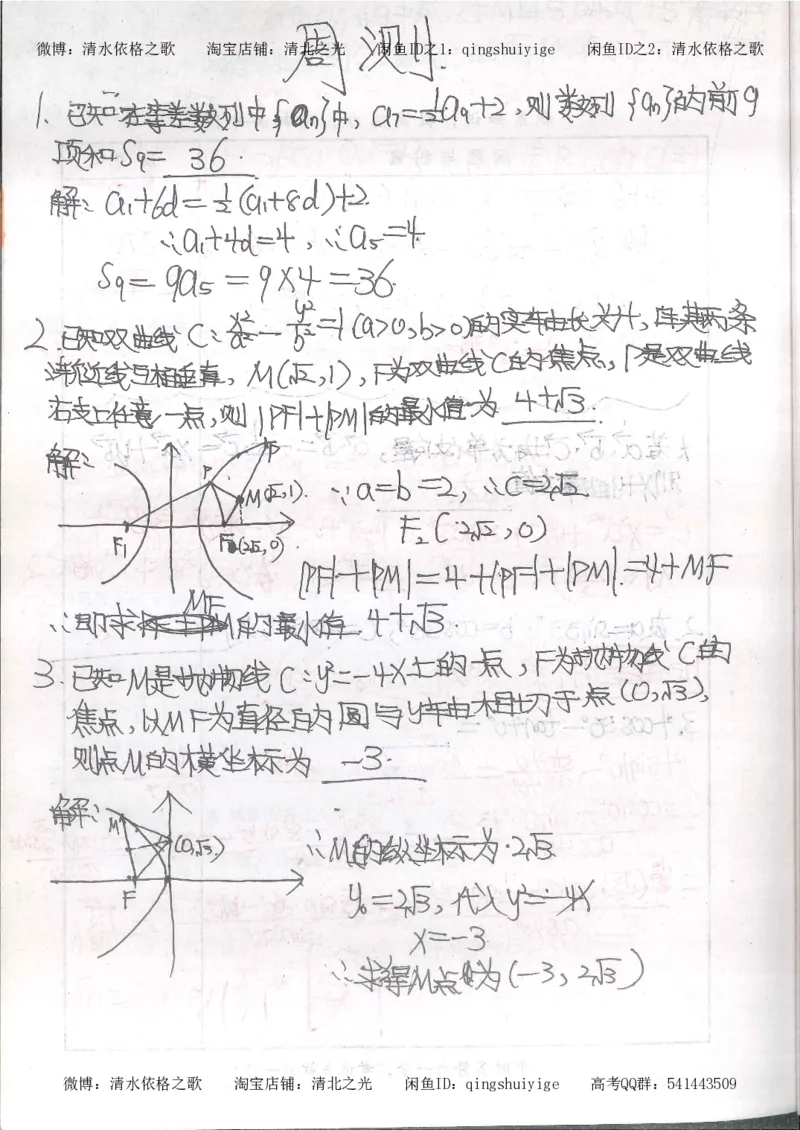 微博：清水依格之歌 淘宝店铺：清北之光 闲鱼ID之1：qingshuiyige 闲鱼ID之2：清水依格之歌
周测1.
1. 已知在等差数列中{an}中, a₇=½a₉+2, 则数列{an}的前9
项和S₉= 36.
解: a₁+6d=½(a₁+8d)+2.
∴a₁+4d=4, ∴a₅=4
S₉=9a₅=9×4=36.
2. 已知双曲线C: x²/a²-y²/b²=1(a>0,b>0)的实轴长为4, 且其两条
渐近线互相垂直, M(√2,1), F为双曲线C的焦点, P是双曲线
右支上任意一点, 则|PF|+|PM|的最小值为 4+√3.
解:
P
M(√2,1).
F₁
F₂(2√2,0)
∵a=b=2, ∴c=2√2
F₂(2√2,0)
|PF|+|PM|=4+|PF|+|PM|.=4+MF
∴即求MF的最小值. 4+√3
3. 已知M是抛物线C:y²=-4x上的一点, F为抛物线C的
焦点, 以MF为直径的圆与y轴相切于点(0,√3),
则点M的横坐标为 -3.
解:
M
(0,√3)
F
∴M的纵坐标为2√3
y₀=2√3, 代入y²=-4x
x=-3
∴求得M点为(-3, 2√3)
微博：清水依格之歌 淘宝店铺：清北之光 闲鱼ID：qingshuiyige 高考QQ群：541443509